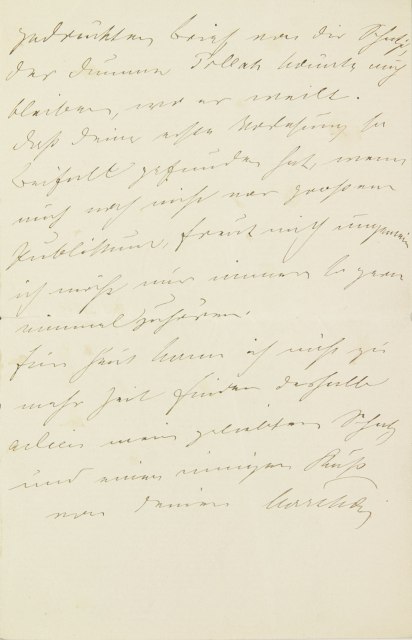 gedruckten Brief von dir Schatz
der dumme Pollak könnte auch
bleiben, wo er weilt.
Daß deine erste Vorlesung so
Beifall gefunden hat, wenn
auch noch nicht vor großem
Publikum, freut mich ungemein
ich möcht nur immer so gern
einmal zuhören.
Für heut kann ich nicht zu
mehr Zeit finden deshalb
adieu mein geliebter Schatz
und einen innigen Kuß
von deiner